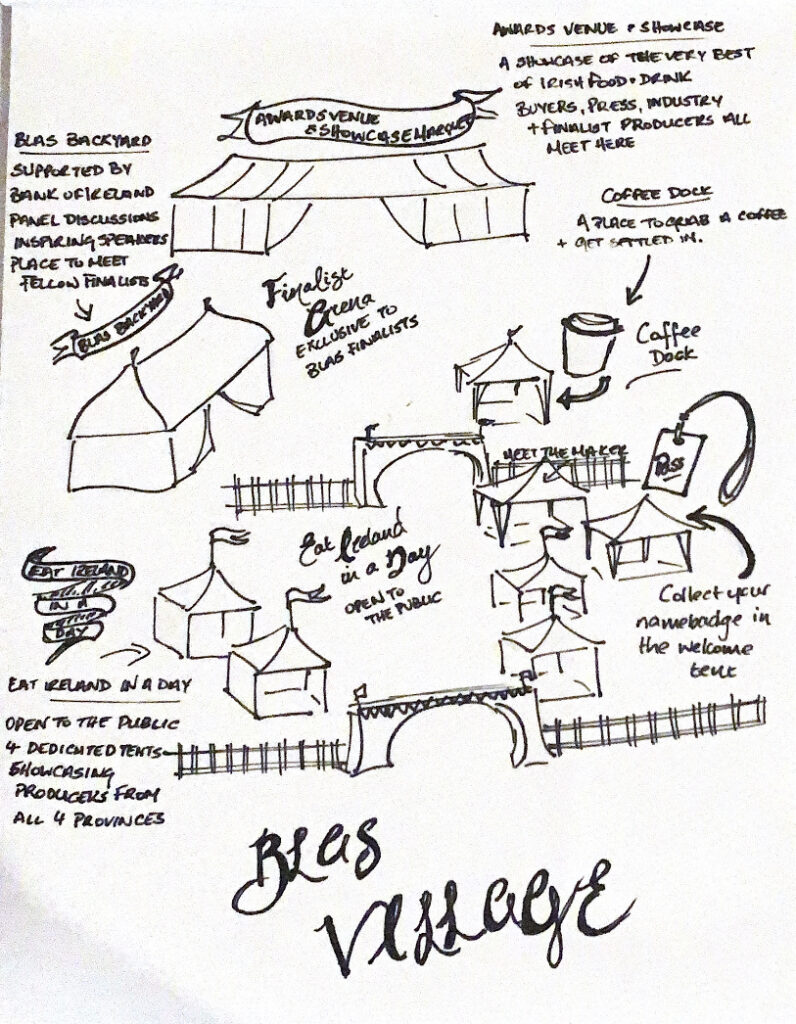 AWARDS VENUE & SHOWCASE
A SHOWCASE OF THE VERY BEST
OF IRISH FOOD + DRINK
BUYERS, PRESS, INDUSTRY
+ FINALIST PRODUCERS ALL
MEET HERE
AWARDS VENUE
& SHOWCASE MARQUEE
BLAS BACKYARD
SUPPORTED BY
BANK OF IRELAND
PANEL DISCUSSIONS
INSPIRING SPEAKERS
PLACE TO MEET
FELLOW FINALISTS
BLAS BACKYARD
COFFEE DOCK
A PLACE TO GRAB A COFFEE
+ GET SETTLED IN.
Finalist
Arena
EXCLUSIVE TO
BLAS FINALISTS
Coffee
Dock
MEET THE MAKER
PASS
Eat Ireland
in a Day
OPEN TO
THE PUBLIC
EAT IRELAND
IN A
DAY
Collect your
namebadge in
the welcome
tent
EAT IRELAND IN A DAY
OPEN TO THE PUBLIC
4 DEDICATED TENTS
SHOWCASING
PRODUCERS FROM
ALL 4 PROVINCES
BLAS
VILLAGE